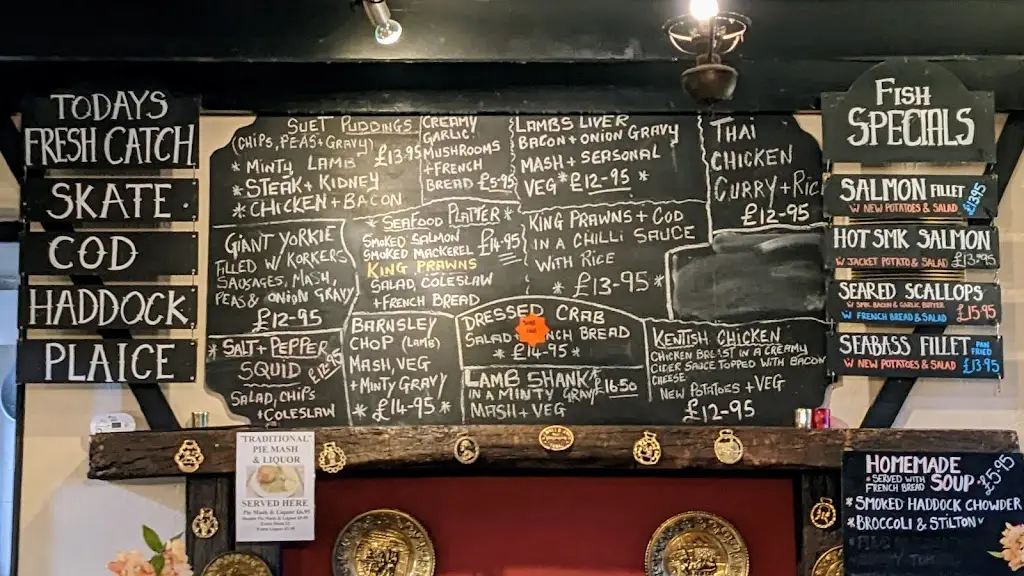 TODAYS
FRESH CATCH
SKATE
COD
HADDOCK
PLAICE
SUET PUDDINGS
(CHIPS, PEAS + GRAVY)
* MINTY LAMB £13.95
* STEAK + KIDNEY
* CHICKEN + BACON
CREAMY
GARLIC
MUSHROOMS
+ FRENCH
BREAD £5.95
LAMBS LIVER
BACON + ONION GRAVY
MASH + SEASONAL
VEG * £12-95 *
THAI
CHICKEN
CURRY + RICE
£12-95
GIANT YORKIE
FILLED W/ KORKERS
SAUSAGES, MASH,
PEAS & ONION GRAVY
£12-95
* SEAFOOD PLATTER *
SMOKED SALMON
SMOKED MACKEREL £14.95
KING PRAWNS
SALAD, COLESLAW
+ FRENCH BREAD
KING PRAWNS + COD
IN A CHILLI SAUCE
WITH RICE
* £13-95 *
* SALT + PEPPER
SQUID £12-95
SALAD, CHIPS
+ COLESLAW
BARNSLEY
CHOP (LAMB)
MASH, VEG
+ MINTY GRAVY
* £14-95 *
DRESSED CRAB
SALAD BREAD
* £14-95 *
LAMB SHANK *
IN A MINTY GRAVY £16.50
MASH + VEG
KENTISH CHICKEN
CHICKEN BREAST IN A CREAMY
CIDER SAUCE TOPPED WITH BACON
CHEESE
NEW POTATOES + VEG
£12-95
FISH
SPECIALS
SALMON FILLET £13.95
W NEW POTATOES & SALAD
HOT SMK SALMON
W JACKET POTATO & SALAD £13.95
SEARED SCALLOPS
W SMK BACON & GARLIC BUTTER £15.95
W FRENCH BREAD & SALAD
SEABASS FILLET PAN FRIED
W NEW POTATOES & SALAD £13.95
"TRADITIONAL"
PIE MASH
& LIQUOR
SERVED HERE
Pie Mash & Liquor £6.95
HOMEMADE
SOUP £5.95
* SERVED WITH
FRENCH BREAD
* SMOKED HADDOCK CHOWDER
* BROCCOLI & STILTON V